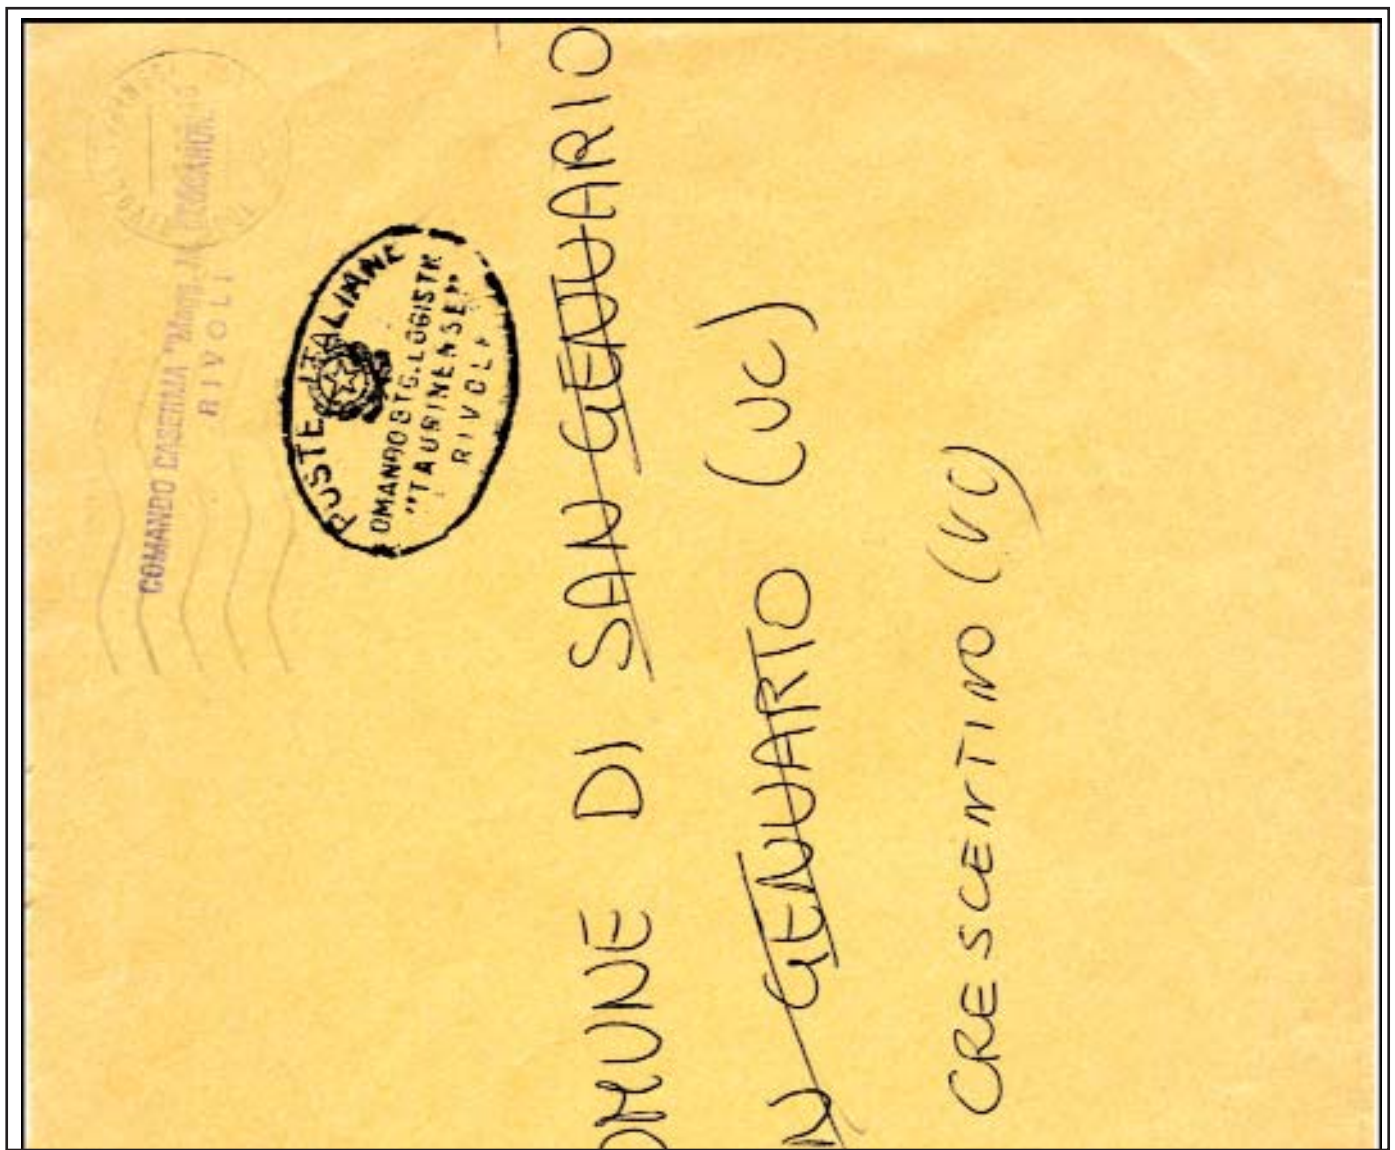 COMANDO CASERMA
RIVOLI
POSTE ITALIANE
OMANDO BTG. LOGISTR
"TAURINENSE"
RIVOLI
OMUNE DI SAN GENUARIO
N GENUARIO (VC)
CRESCENTINO (VC)